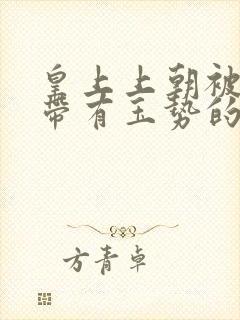 皇上上朝被
带有玉势的
方青卓